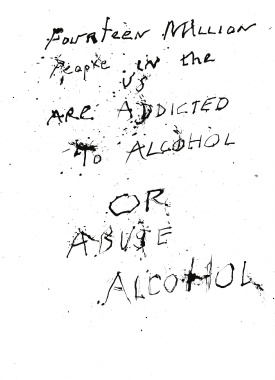 Fourteen Million
People in the
US
ARE ADDICTED
To ALCOHOL
OR
ABUSE
ALCOHOL